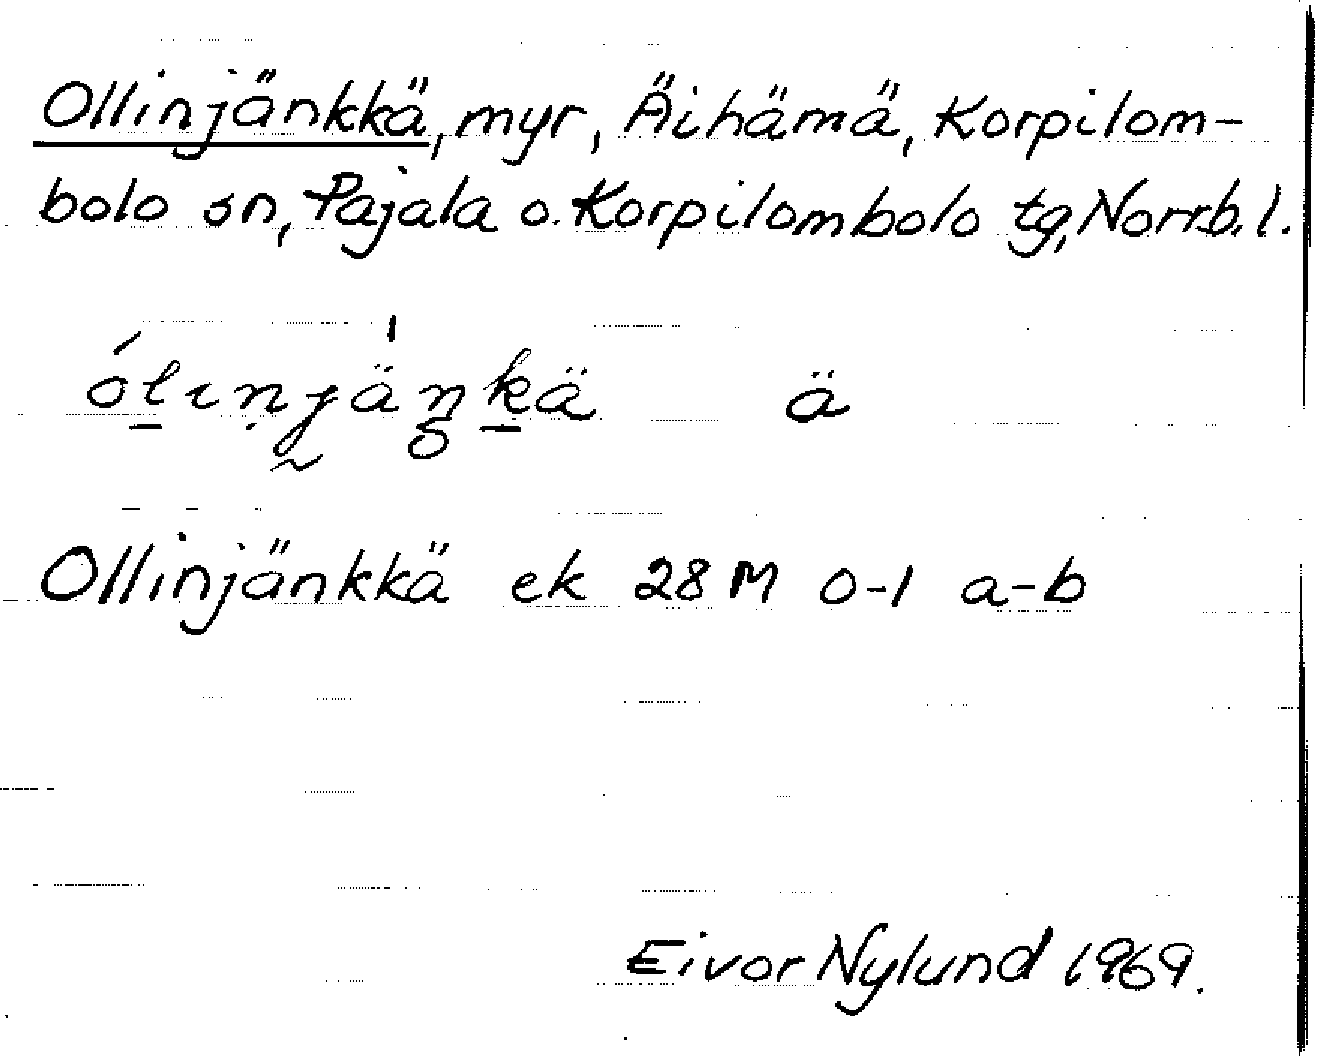 Ollinjänkkä, myr, Äihämä, Korpilom-
bolo sn, Pajala o. Korpilombolo tg, Norrb. l.
ólinjäŋkä ä
Ollinjänkkä ek 28 M 0-1 a-b
Eivor Nylund 1969.